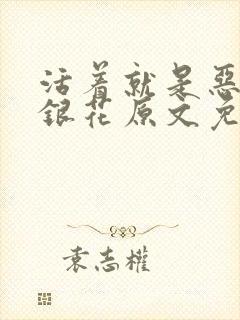 活着就是惡
銀花原文免
袁志權